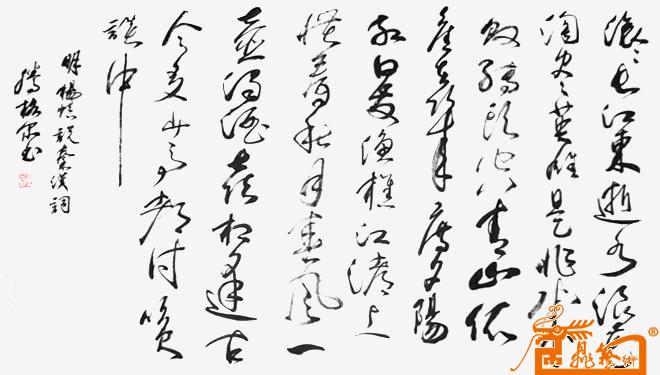 滚〻长江東逝水浪花
淘尽英雄是非成
败转头空青山依
旧在几度夕陽
红白发渔樵江渚上
惯看秋月春風一
壶濁酒喜相逢古
今多少事都付笑
談中
明楊慎説秦漢詞
腾格尔书